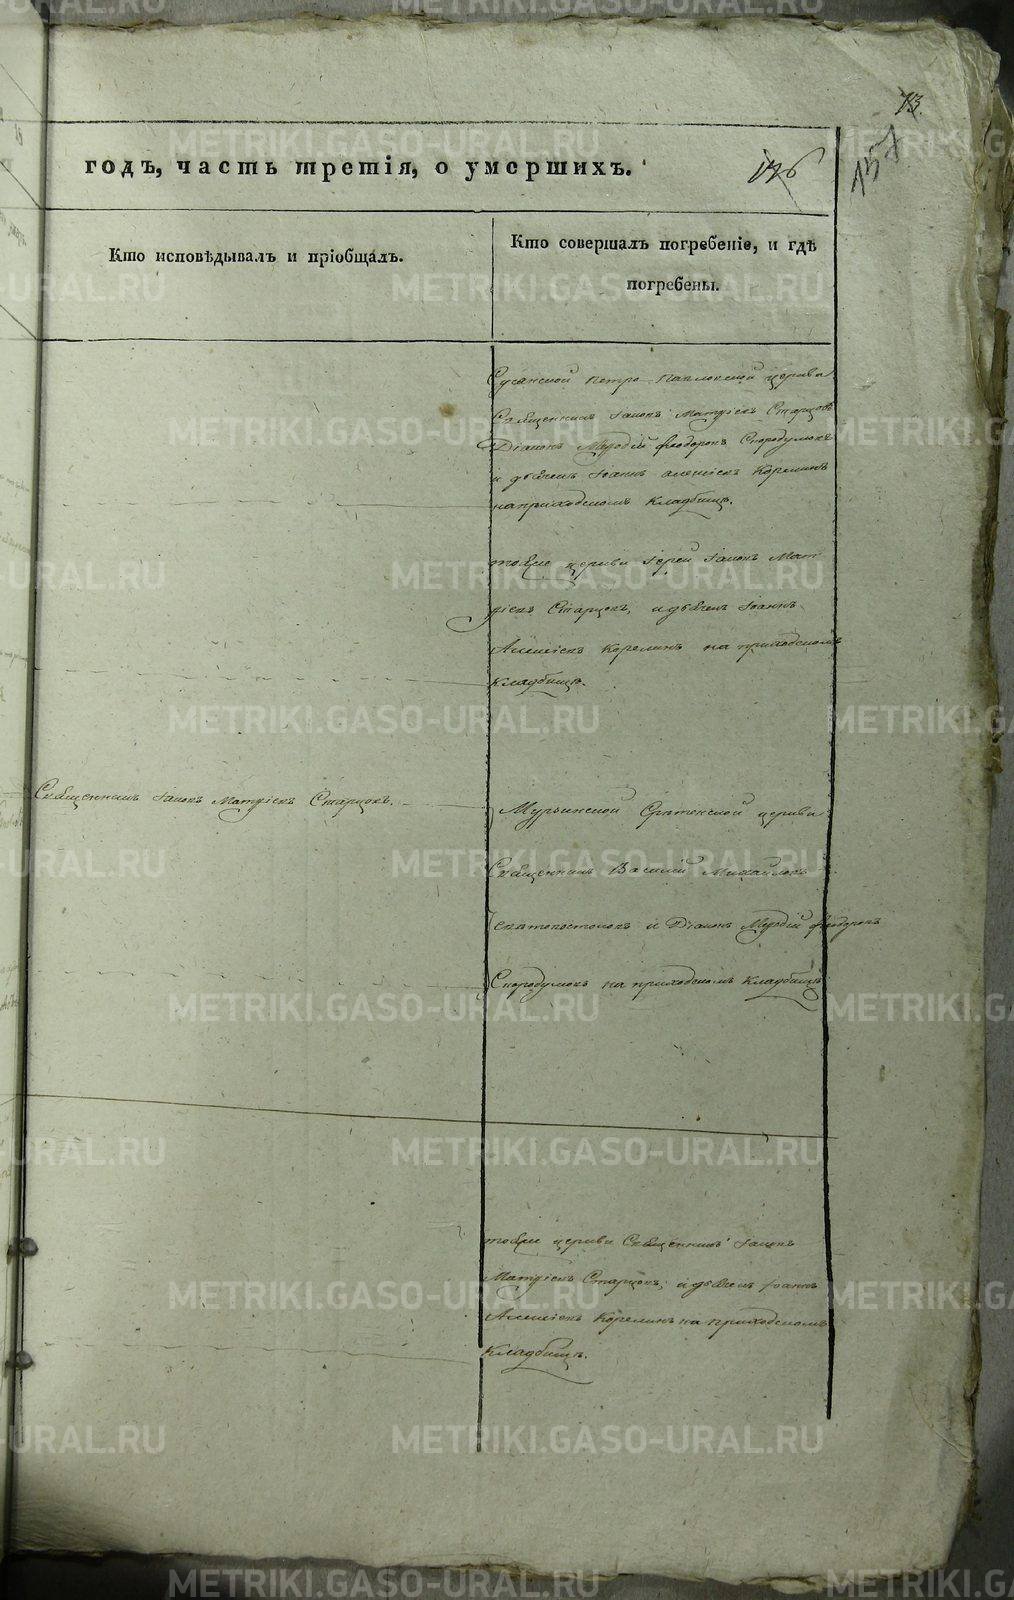 73.
157
136
годъ, часть третія, о умершихъ.
Кто исповѣдывалъ и пріобщалъ.
Кто совершалъ погребеніе, и гдѣ
погребены.
Сусанской Петро-Павловской церкви
Священникъ Іаковъ Матѳіевъ Старцовъ
Діаконъ Меѳодій Феодоровъ Скородумовъ
и дьячекъ Іоаннъ Алексіевъ Корелинъ
на приходскомъ Кладбищѣ.
тояже церкви Іерей Іаковъ Мат
ѳіевъ Старцовъ, и дьячекъ Іоаннъ
Алексіевъ Корелинъ на приходскомъ
Кладбищѣ.
Священникъ Іаковъ Матѳіевъ Старцовъ.
Мурзинской Срѣтенской церкви
Священникъ Василій Михайловъ
и Діаконъ Меѳодій Феодоровъ
Скородумовъ на приходскомъ Кладбищѣ
тояже церкви Священникъ Іаковъ
Матѳіевъ Старцовъ, и дьячекъ Іоаннъ
Алексіевъ Корелинъ на приходскомъ
Кладбищѣ.
METRIKI.GASO-URAL.RU